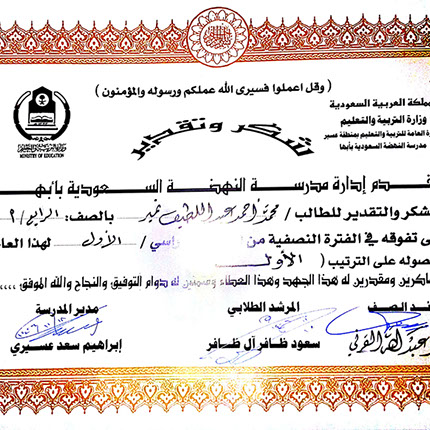 ( وقل اعملوا فسيرى الله عملكم ورسوله والمؤمنون )
ملكة العربية السعودية
وزارة التربية والتعليم
رة العامة للتربية والتعليم بمنطقة عسير
مدرسة النهضة السعودية بأبها
MINISTRY OF EDUCATION
شكر وتقدير
قدم إدارة مدرسة النهضة السعودية بابها
شكر والتقدير للطالب / محمد أحمد عبد اللطيف بالصف: الرابع / ٢
ى تفوقه في الفترة النصفية من اسي / الأول لهذا العا
صوله على الترتيب ( الأول
اكرين ومقدرين له هذا الجهد وهذا العطاء له دوام التوفيق والنجاح والله الموفق ,,,,
ئد الصف
المرشد الطلابي
مدير المدرسة
سعود ظافر آل ظافر
إبراهيم سعد عسيري